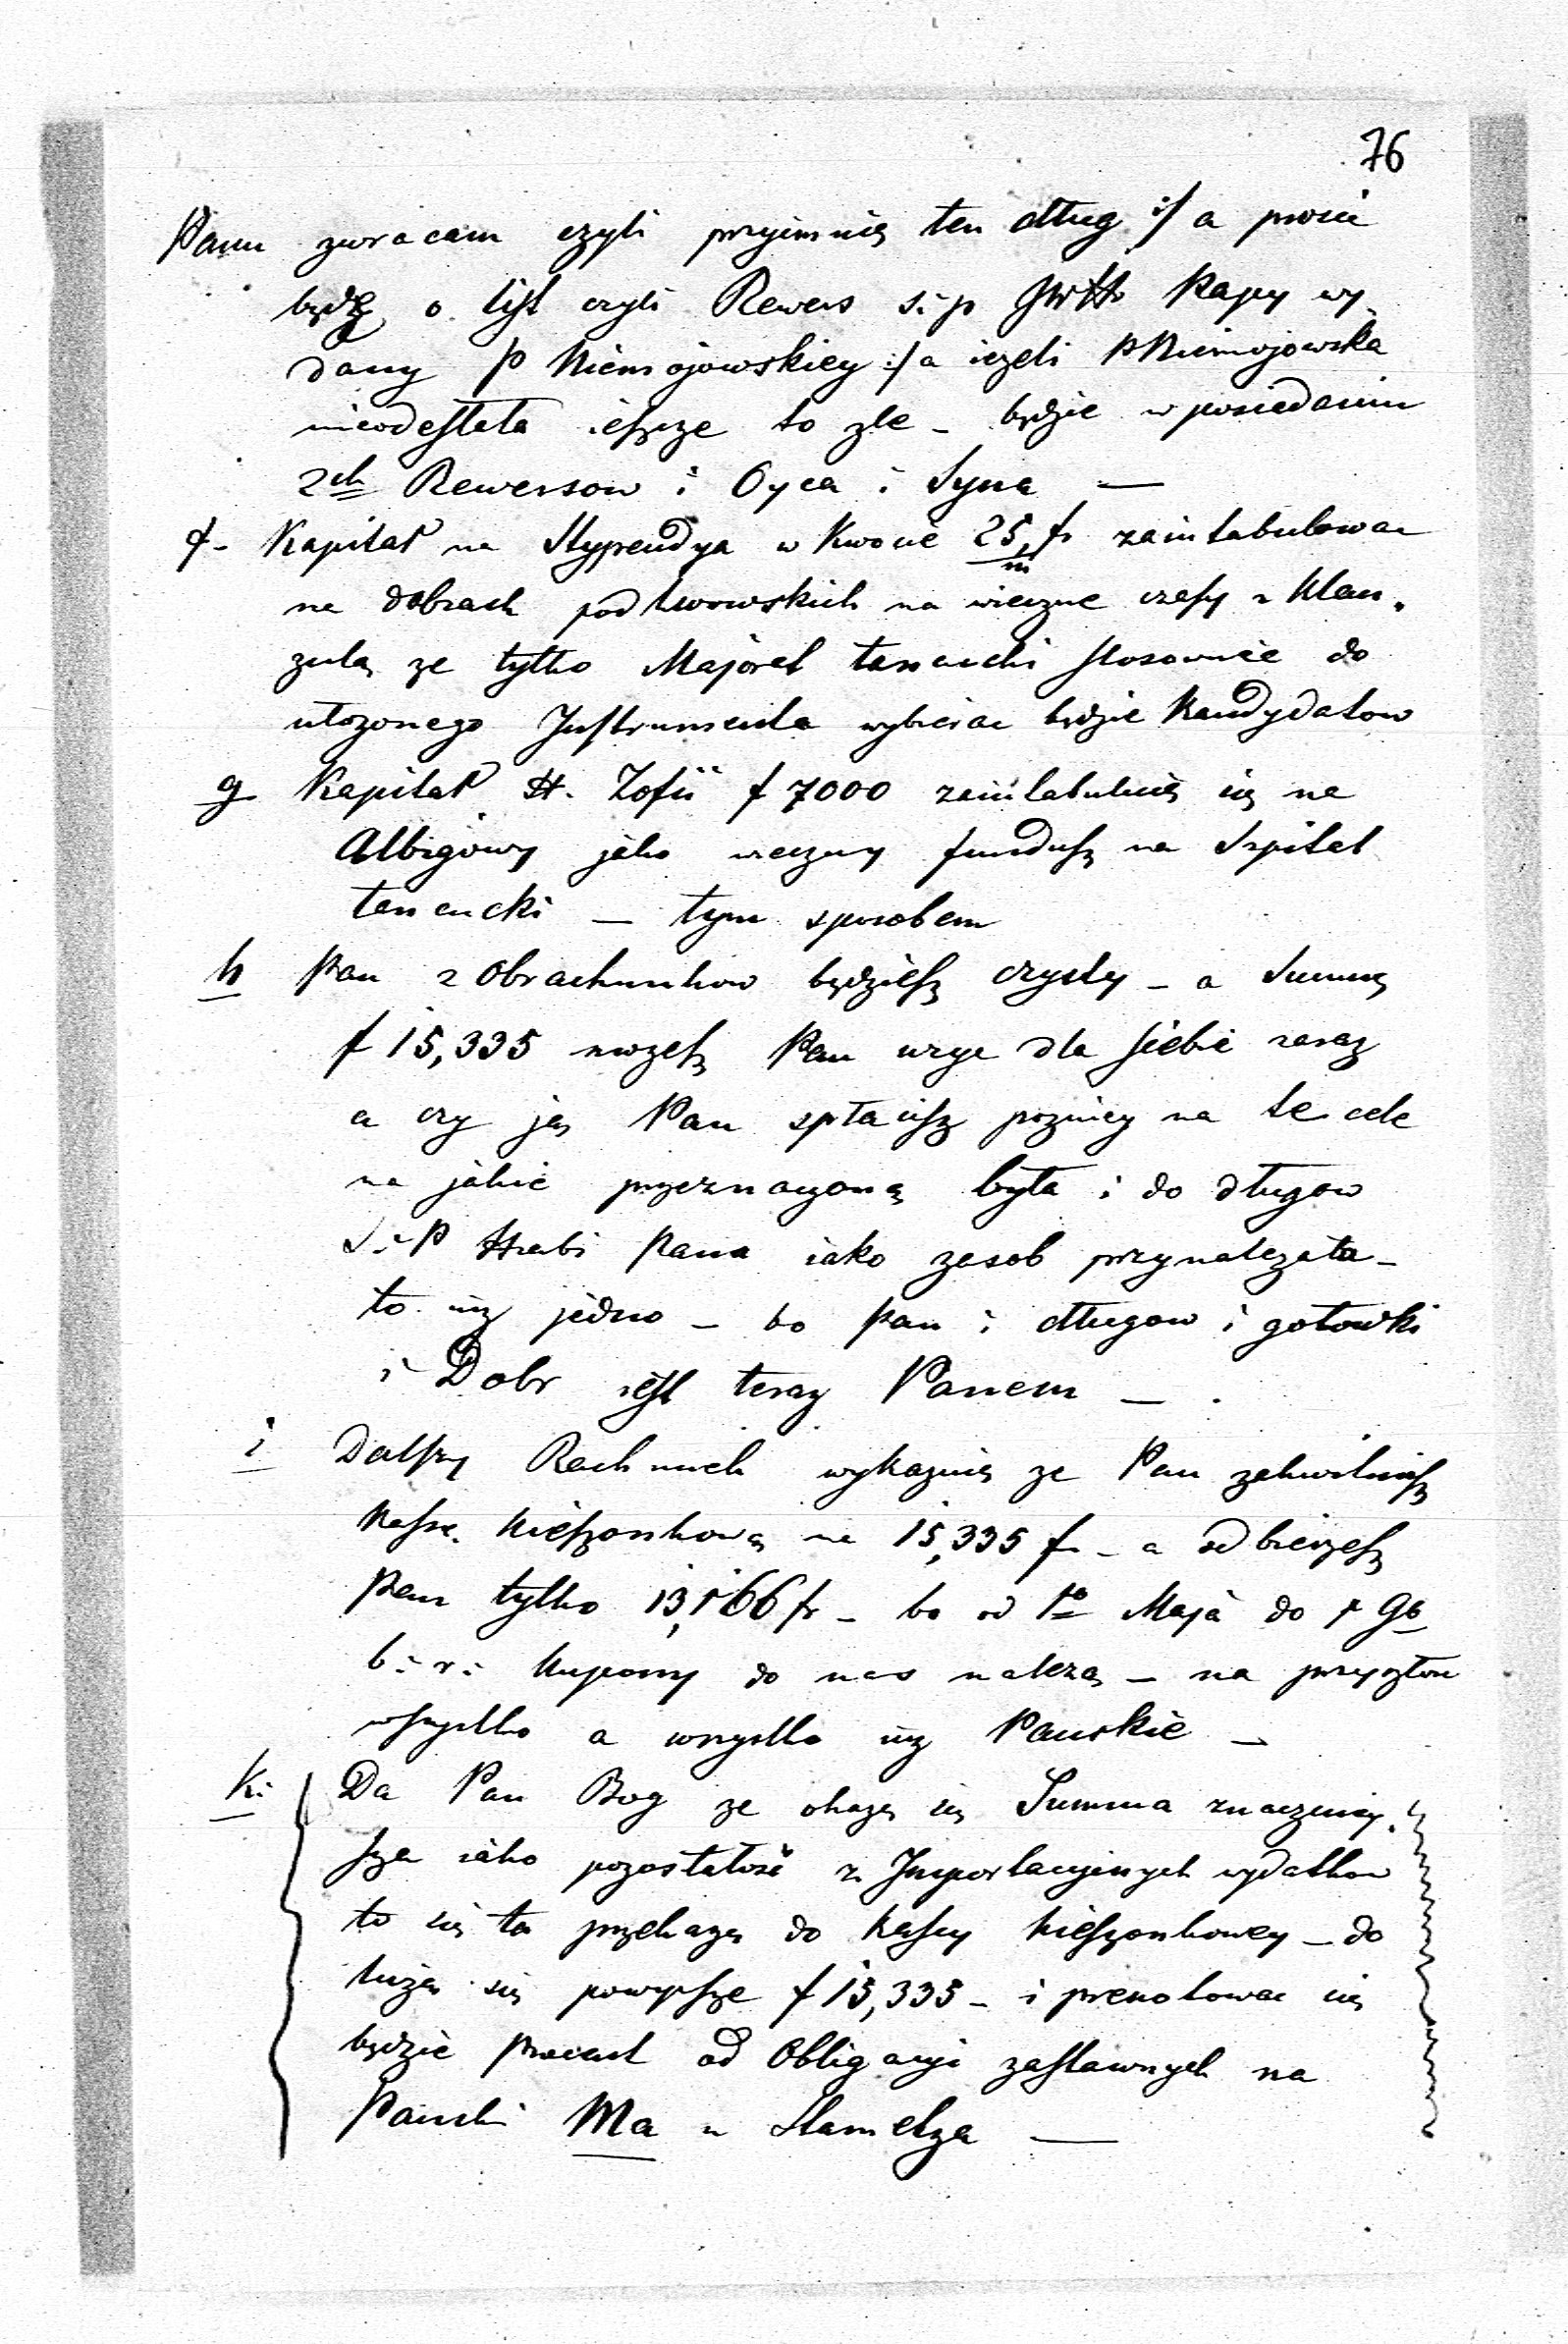 76
Panu zwracam czyli przyimuię ten dług :/ a prosić
będę o list czyli Rewers ś:p JWH Kapy wy,
dany P Niemojowskiey :/ a ieżeli P Niemojowska
nieodesłała ieszcze to zle – będzie w posiedaniu
2ch Rewersow i Oyca i Syna —
f. Kapitał na Stypendya w Kwocie 25,m fr zaintabulowac
na dobrach podlwowskich na wieczne czasy z Klau,
zulą ze tylko Majorat Łancucki stosownie do
ułozonego Instrumenta wybierac będzie Kandydatow
g Kapitał H. Zofii f 7000 zaintabuluię się na
Albigowy jako wieczny fundusz na Szpital
Łancucki – tym sposobem
h Pan z Obrachunkow będziesz czysty – a Summę
f 15,335 mozesz Pan wzyc dla siebie zaraz
a czy ją Pan spłacisz pozniey na te cele
na jakie przeznaczoną była i do długow
S:P Hrabi Pana iako zasob przynalezała –
to iuz jedno – bo Pan i długow i gotowki
i Dobr iest teraz Panem — .
i Dalszy Rachunek wykazuię ze Pan zakwituiesz
Kassę Kieszonkową na 15,335 fr – a odbierzesz
Pan tylko 13,166 fr – bo od 1o Maja do 1 9b
b: r: Kupony do nas nalezą – na przyszłosc
wszystko a wszystko iuz Panskie –
k: Da Pan Bog ze okaze się Summa znaczniey,
sza iako pozostałość z Importacyinych wydatkow
to się ta przekazę do Kassy Kieszonkowey – do
łuzą się powyzsze f 15,335 – i prenotowac się
będzie Procent od Obligacyi zastawnych na
Panski Ma u Stametza —